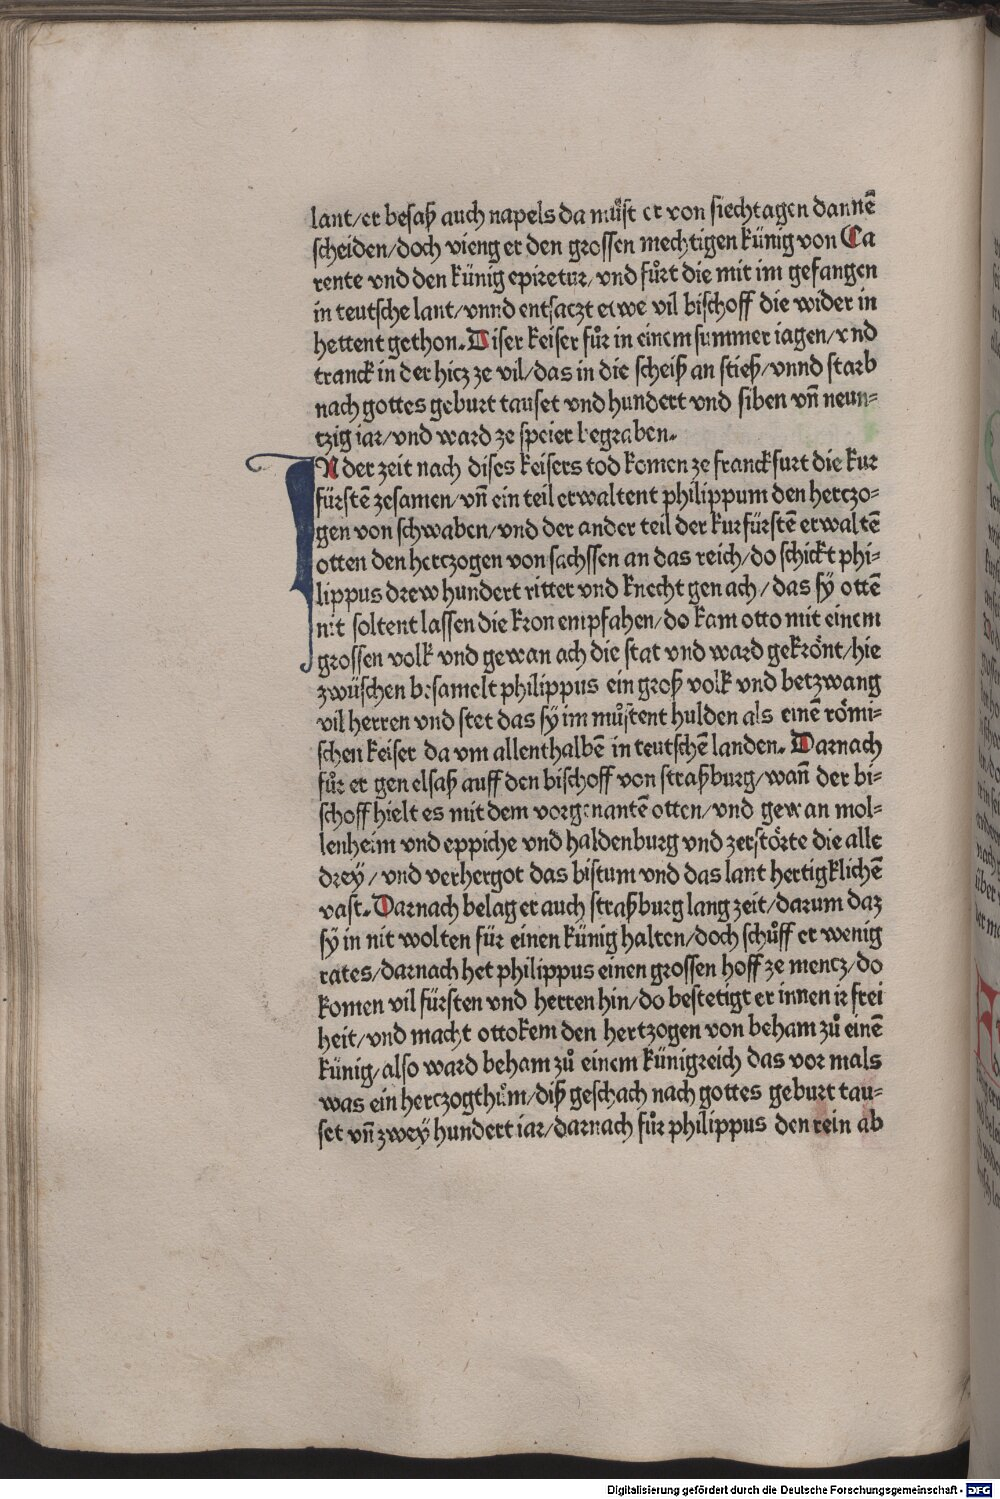 lant/er besaß auch napels da muͦst er von siechtagen dannē
scheiden/doch vieng er den grossen mechtigen künig von Ca
rente vnd den künig epiretur/vnd fuͦrt die mit im gefangen
in teutsche lant/vnnd entsaczt etwe vil bischoff die wider in
hettent gethon. Diser keiser fuͦr in einem summer iagen/vnd
tranck in der hicz ze vil/das in die scheiß an stieß/vnnd starb
nach gottes geburt tauset vnd hundert vnd siben vn̄ neun⸗
tzig iar/vnd ward ze speier begraben.
IN der zeit nach dises keisers tod komen ze franckfurt die kur
fürstē zesamen/vn̄ ein teil erwaltent philippum den herczo⸗
gen von schwaben/vnd der ander teil der kurfürstē erwaltē
otten den herczogen von sachssen an das reich/do schickt phi⸗
lippus drew hundert ritter vnd knecht gen ach/das sÿ ottē
nit soltent lassen die kron empfahen/do kam otto mit einem
grossen volk vnd gewan ach die stat vnd ward gekroͤnt/hie
zwüschen besamelt philippus ein groß volk vnd betzwang
vil herren vnd stet das sÿ im muͦstent hulden als einē roͤmi⸗
schen keiser da vm allenthalbē in teutschē landen. Darnach
fuͦr er gen elsaß auff den bischoff von straßburg/wan̄ der bi⸗
schoff hielt es mit dem vorgenantē otten/vnd gewan mol⸗
lenheim vnd eppiche vnd haldenburg vnd zerstoͤrte die alle
dreÿ/vnd verhergot das bistum vnd das lant hertigklichē
vast. Darnach belag er auch straßburg lang zeit/darum daz
sÿ in nit wolten für einen künig halten/doch schuͦff er wenig
rates/darnach het philippus einen grossen hoff ze mencz/do
komen vil fürsten vnd herren hin/do bestetigt er innen ir frei
heit/vnd macht ottokem den hertzogen von beham zuͦ einē
künig/also ward beham zuͦ einem künigreich das vor mals
was ein herczogthuͦm/diß geschach nach gottes geburt tau⸗
set vn̄ zweÿ hundert iar/darnach fuͦr philippus den rein ab
Digitalisierung gefördert durch die Deutsche Forschungsgemeinschaft - DFG